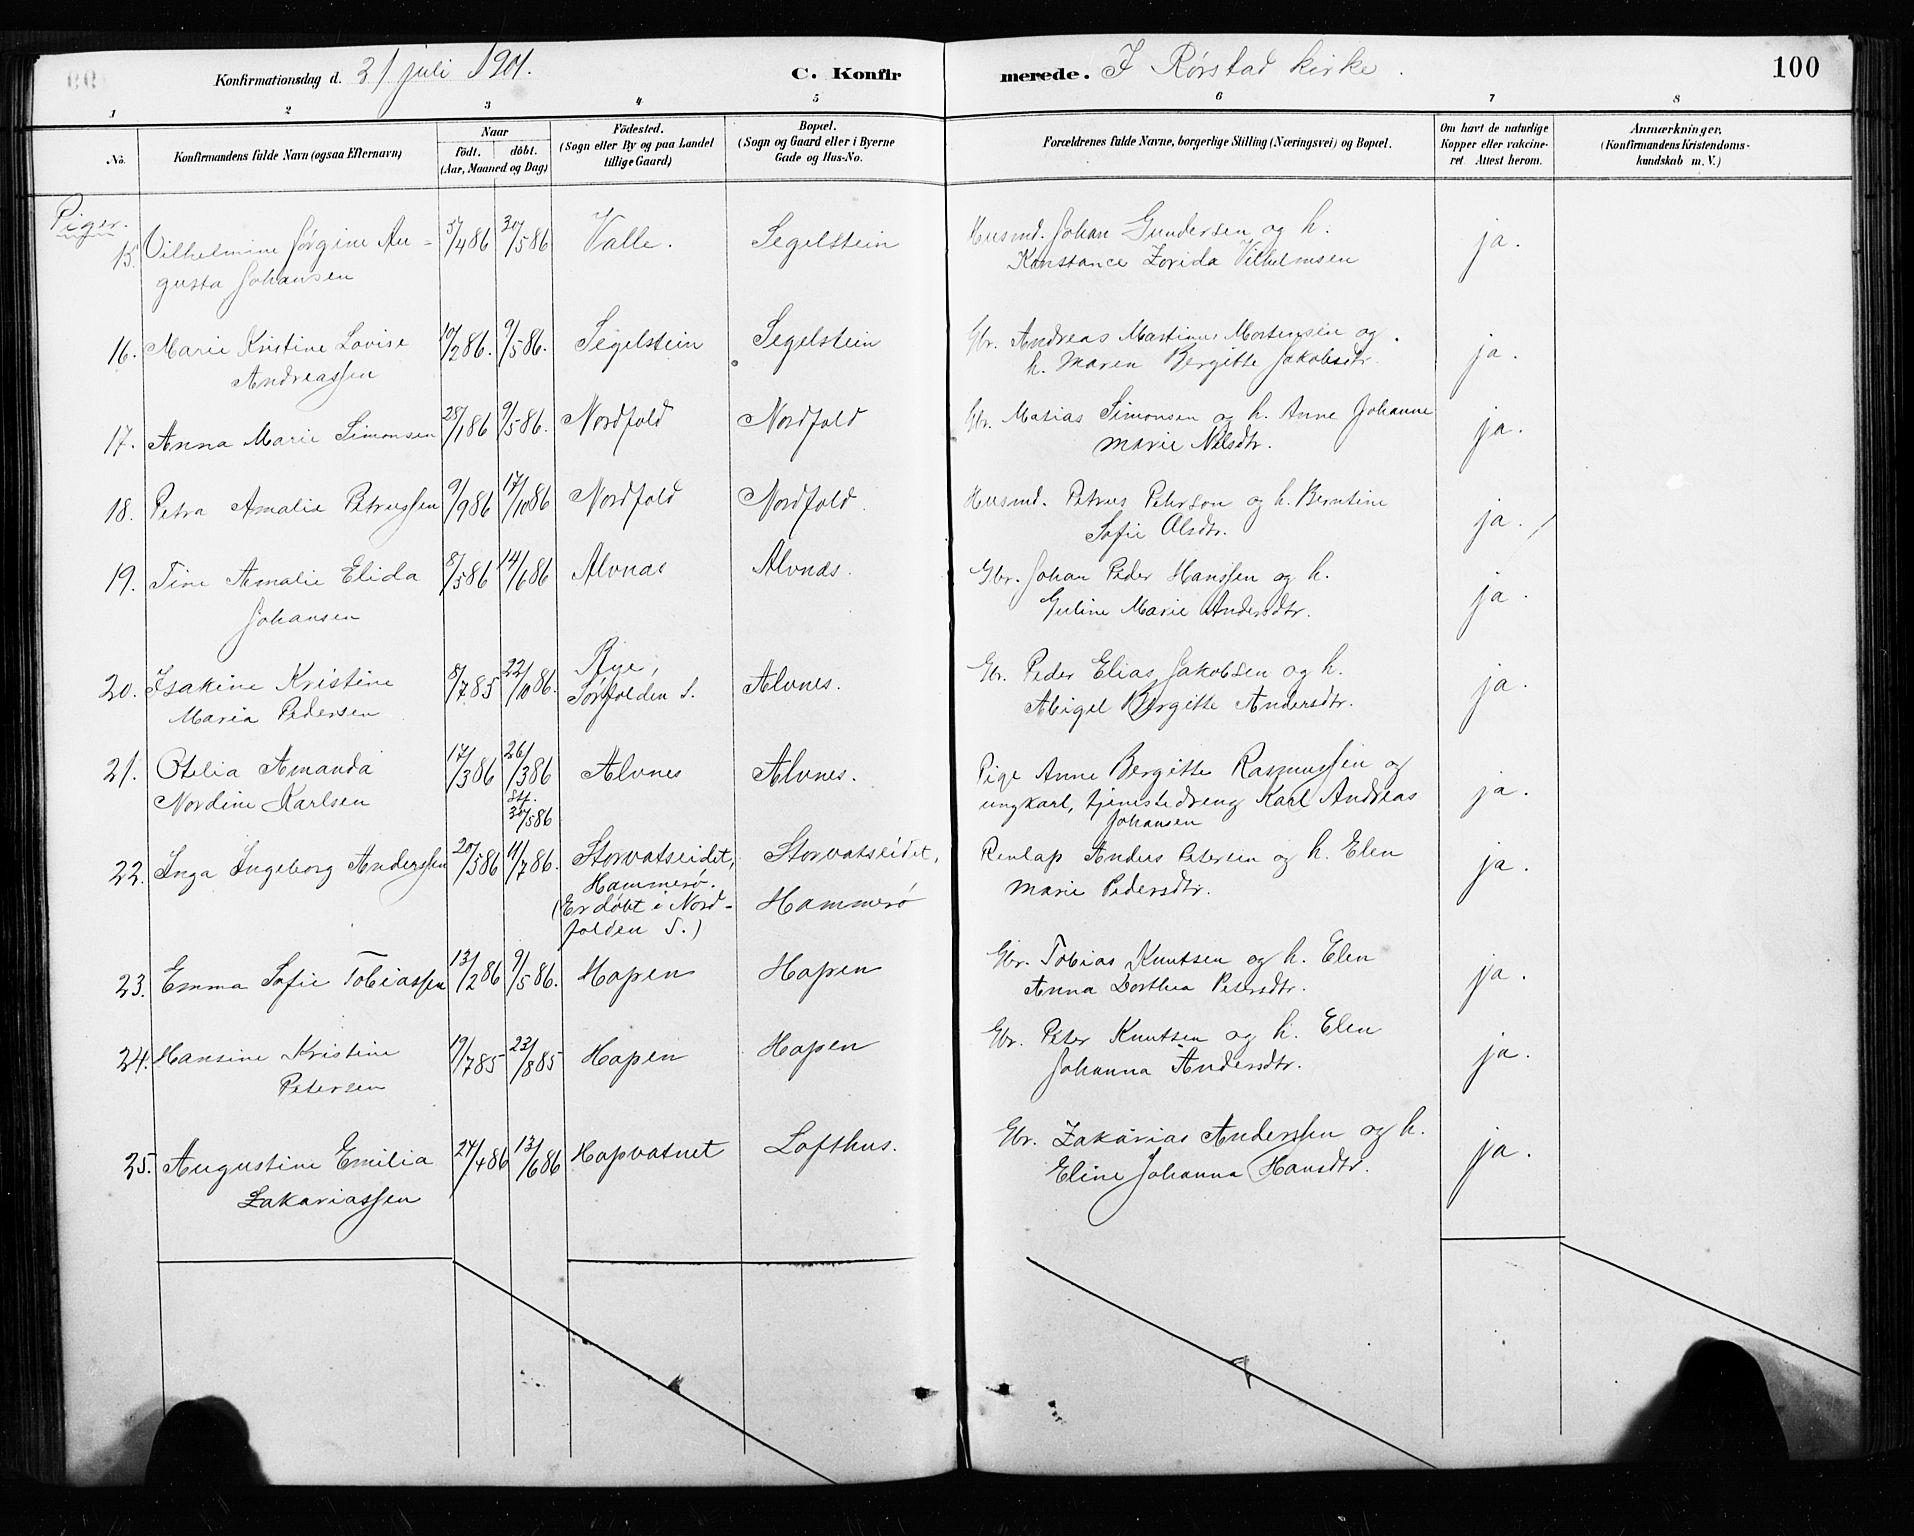 Konfirmationsdag d. 21 juli 1901. C. Konfirmerede. I Rørstad kirke. 100
1 2 3 4 5 6 7 8
No. Konfirmandens fulde Navn (ogsaa Efternavn) Naar födt. döbt. (Aar, Maaned og Dag) Födested. (Sogn eller By og paa Landet tillige Gaard) Bopæl. (Sogn og Gaard eller i Byerne Gade og Hus-No. Forældrenes fulde Navne, borgerlige Stilling (Næringsvei) og Bopæl. Om havt de naturlige Kopper eller vakcineret. Attest herom. Anmærkninger. (Konfirmandens Kristendomskundskab m. V.)
Piger.
15. Vilhelmine Jørgine Au- 5/4 86 30/5 86 Valle. Segelstein Husmd. Johan Gundersen og h. ja.
gusta Johansen Konstance Zorida Vilhelmsen
16. Marie Kristine Lovise 10/2 86. 9/5 86. Segelstein Segelstein Gbr. Andreas Martinus Mortensen og ja.
Andreassen h. Maren Bergitte Jakobsdtr.
17. Anna Marie Simonsen 28/1 86 9/5 86. Nordfold Nordfold Gbr. Matias Simonsen og h. Anne Johanne ja.
Marie Nilsdtr.
18. Petra Amalie Petrussen 9/9 86 17/10 86 Nordfold Nordfold. Husmd. Petrus Peterson og h. Berntine ja.
Sofie Olsdtr.
19. Tine Amalie Elida 8/5 86 14/6 86 Alvnas Alvnas. Gbr. Johan Peder Hanssen og h. ja.
Johansen Guline Marie Andersdtr.
20. Isakine Kristine 8/7 85 22/10 86. Rye, Alvnes. Gbr. Peder Elias Jakobsen og h. ja.
Maria Pedersen Sørfolden S. Abigel Bergitte Andersdtr.
21. Otelia Amanda 17/3 86 26/3 86 Alvnes Alvnes. Pige Anne Bergitte Rasmussen og ja.
Nordine Karlsen stf. 30/5 86 ungkarl, tjenestedreng Karl Andreas
Johansen
22. Inga Ingeborg Anderssen 20/5 86 11/7 86. Storvatseidet, Storvatseidet, Renlap Anders Petersen og h. Elen ja.
Hammerø. Hammerø Marie Pedersdtr.
(Er døbt i Nord-
folden S.)
23. Emma Sofie Tobiassen 13/2 86 9/5 86. Hopen Hopen Gbr. Tobias Knutsen og h. Elen ja.
Anna Dorthea Petersdtr.
24. Hansine Kristine 19/7 85 23/8 85 Hopen Hopen Gbr. Peter Knutsen og h. Elen ja.
Petersen Johanna Andersdtr.
25. Augustine Emilia 24/4 86 13/6 86 Hopvatnet Lofthus. Gbr. Zakarias Anderssen og h. ja.
Zakariassen Eline Johanna Hansdtr.